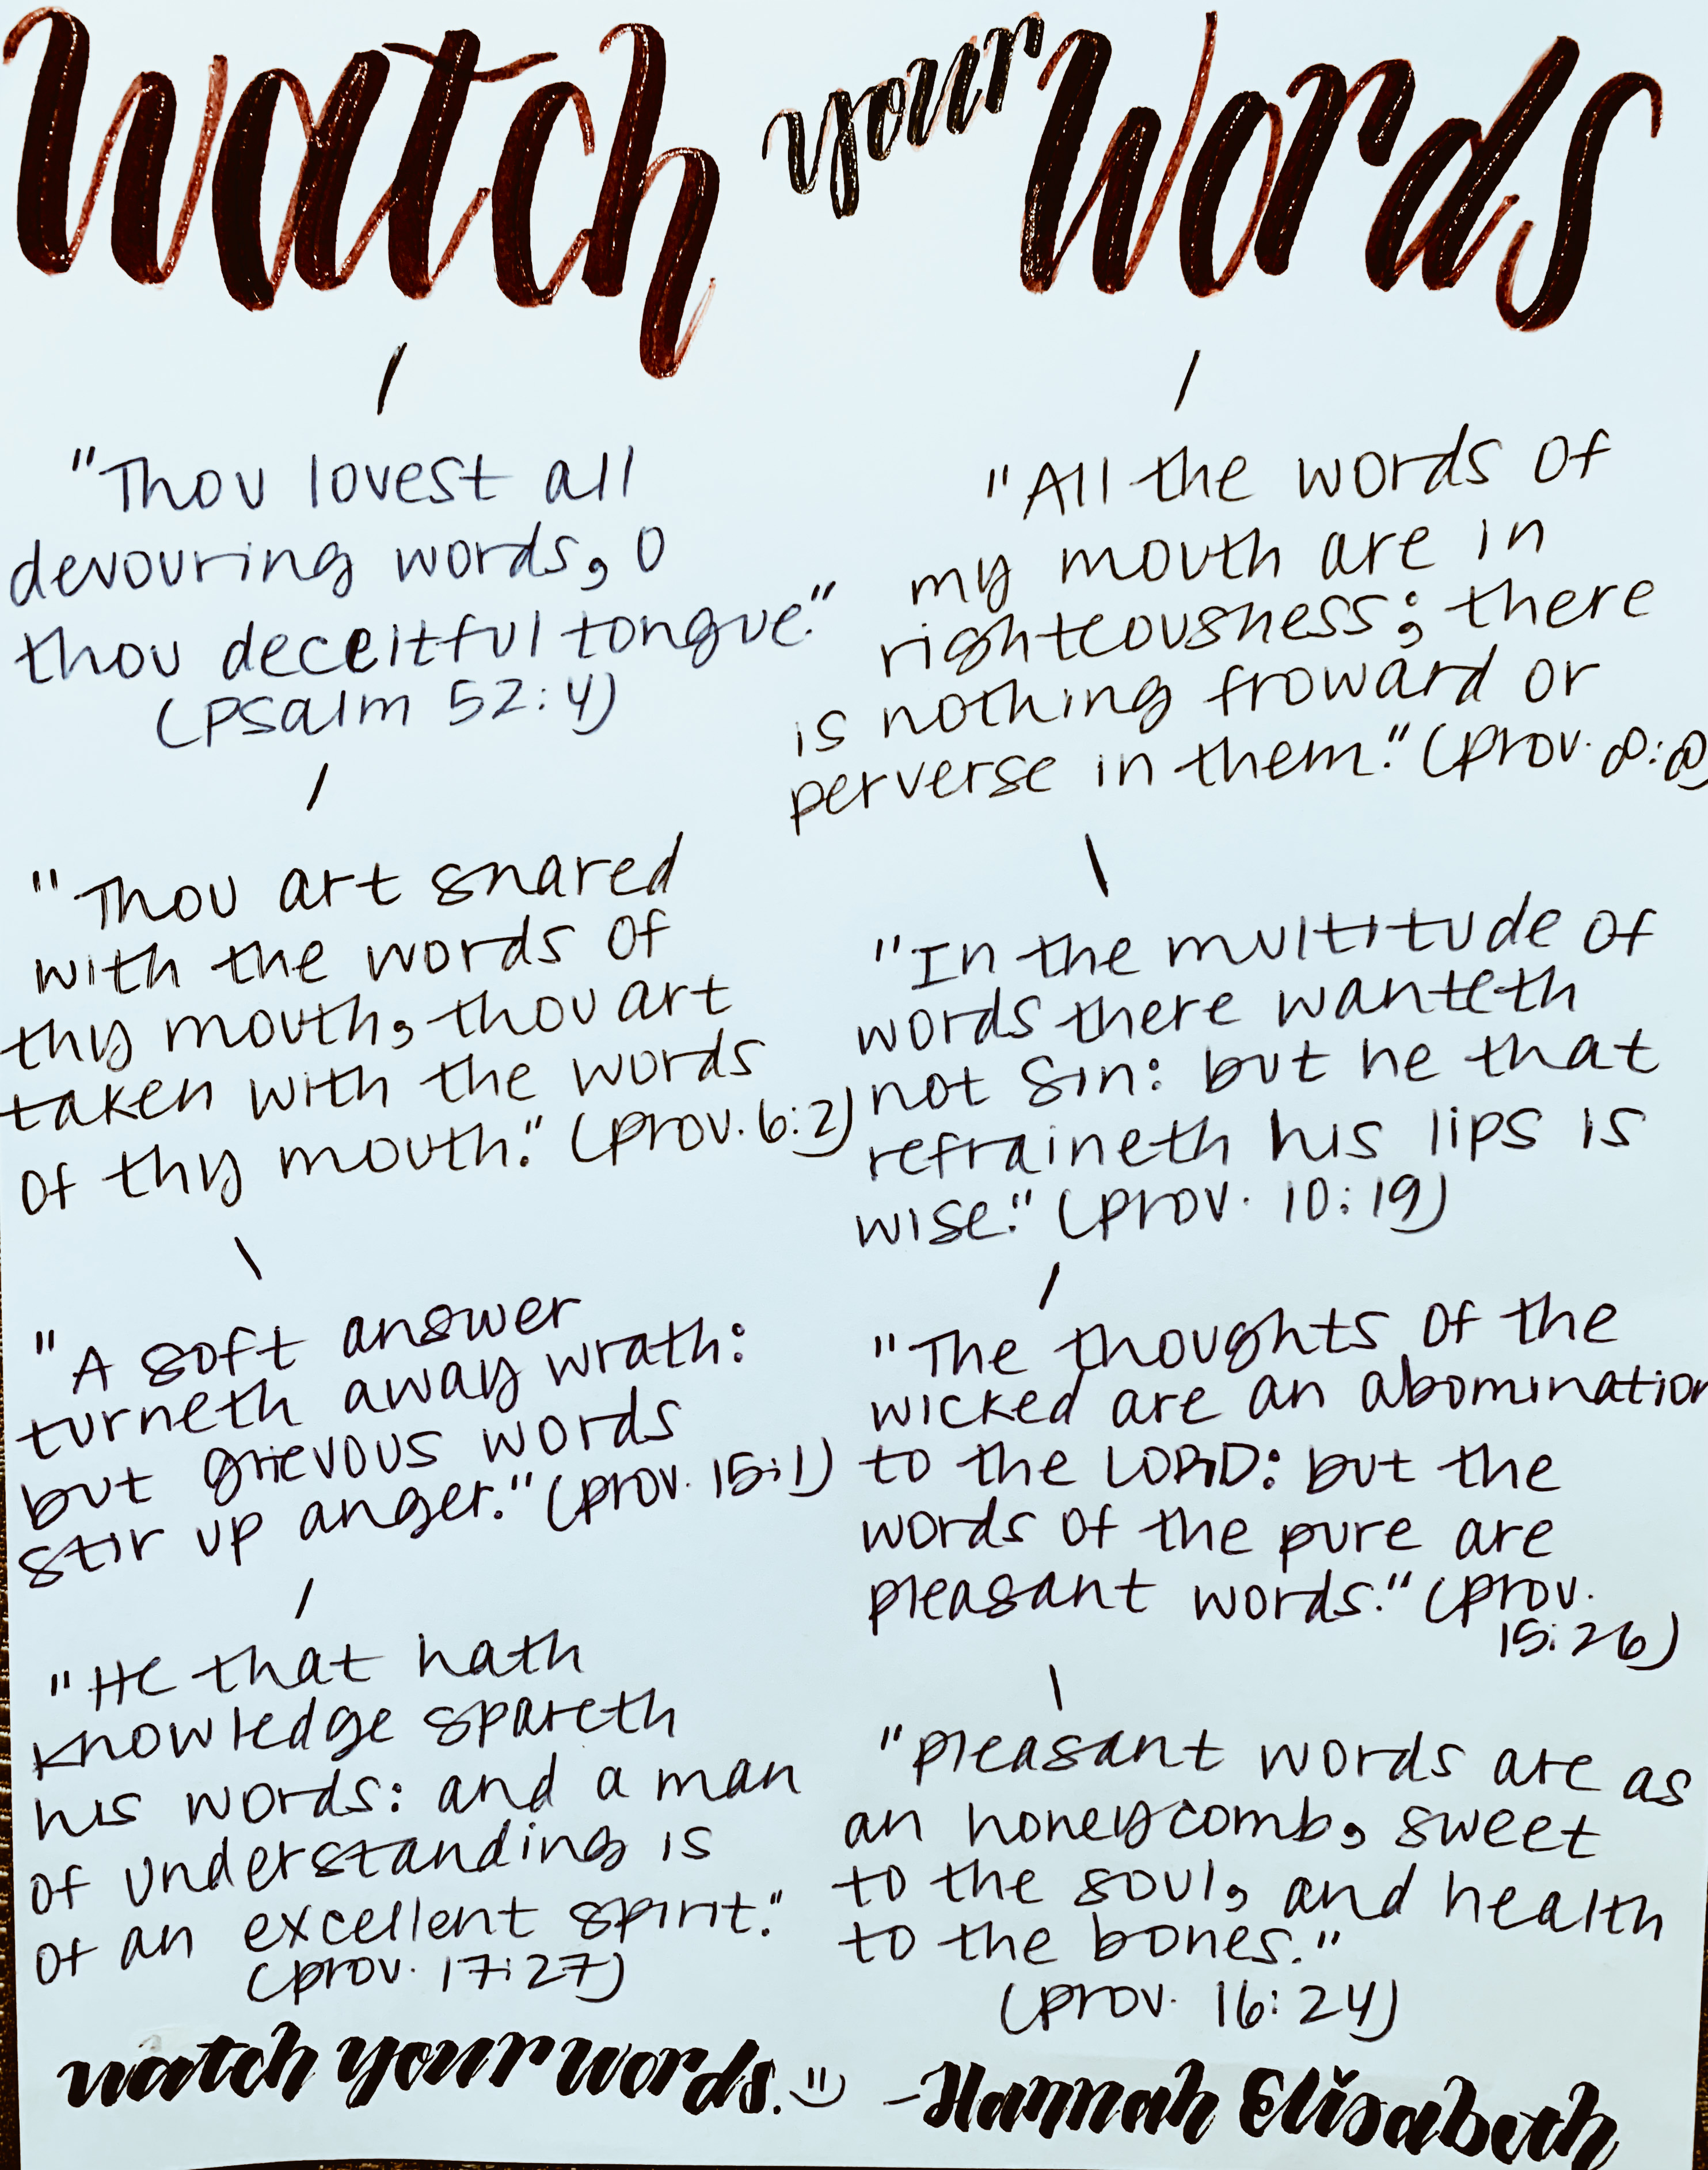 watch your words
"Thou lovest all
devouring words, O
thou deceitful tongue."
(Psalm 52:4)
"Thou art snared
with the words of
thy mouth, thou art
taken with the words
of thy mouth." (Prov. 6:2)
"A soft answer
turneth away wrath:
but grievous words
stir up anger." (Prov. 15:1)
"He that hath
knowledge spareth
his words: and a man
of understanding is
of an excellent spirit."
(Prov. 17:27)
"All the words of
my mouth are in
righteousness; there
is nothing froward or
perverse in them." (Prov. 8:8)
"In the multitude of
words there wanteth
not sin: but he that
refraineth his lips is
wise." (Prov. 10:19)
"The thoughts of the
wicked are an abomination
to the LORD: but the
words of the pure are
pleasant words." (Prov.
15:26)
"Pleasant words are as
an honeycomb, sweet
to the soul, and health
to the bones."
(Prov. 16:24)
watch your words. :) -Hannah Elisabeth